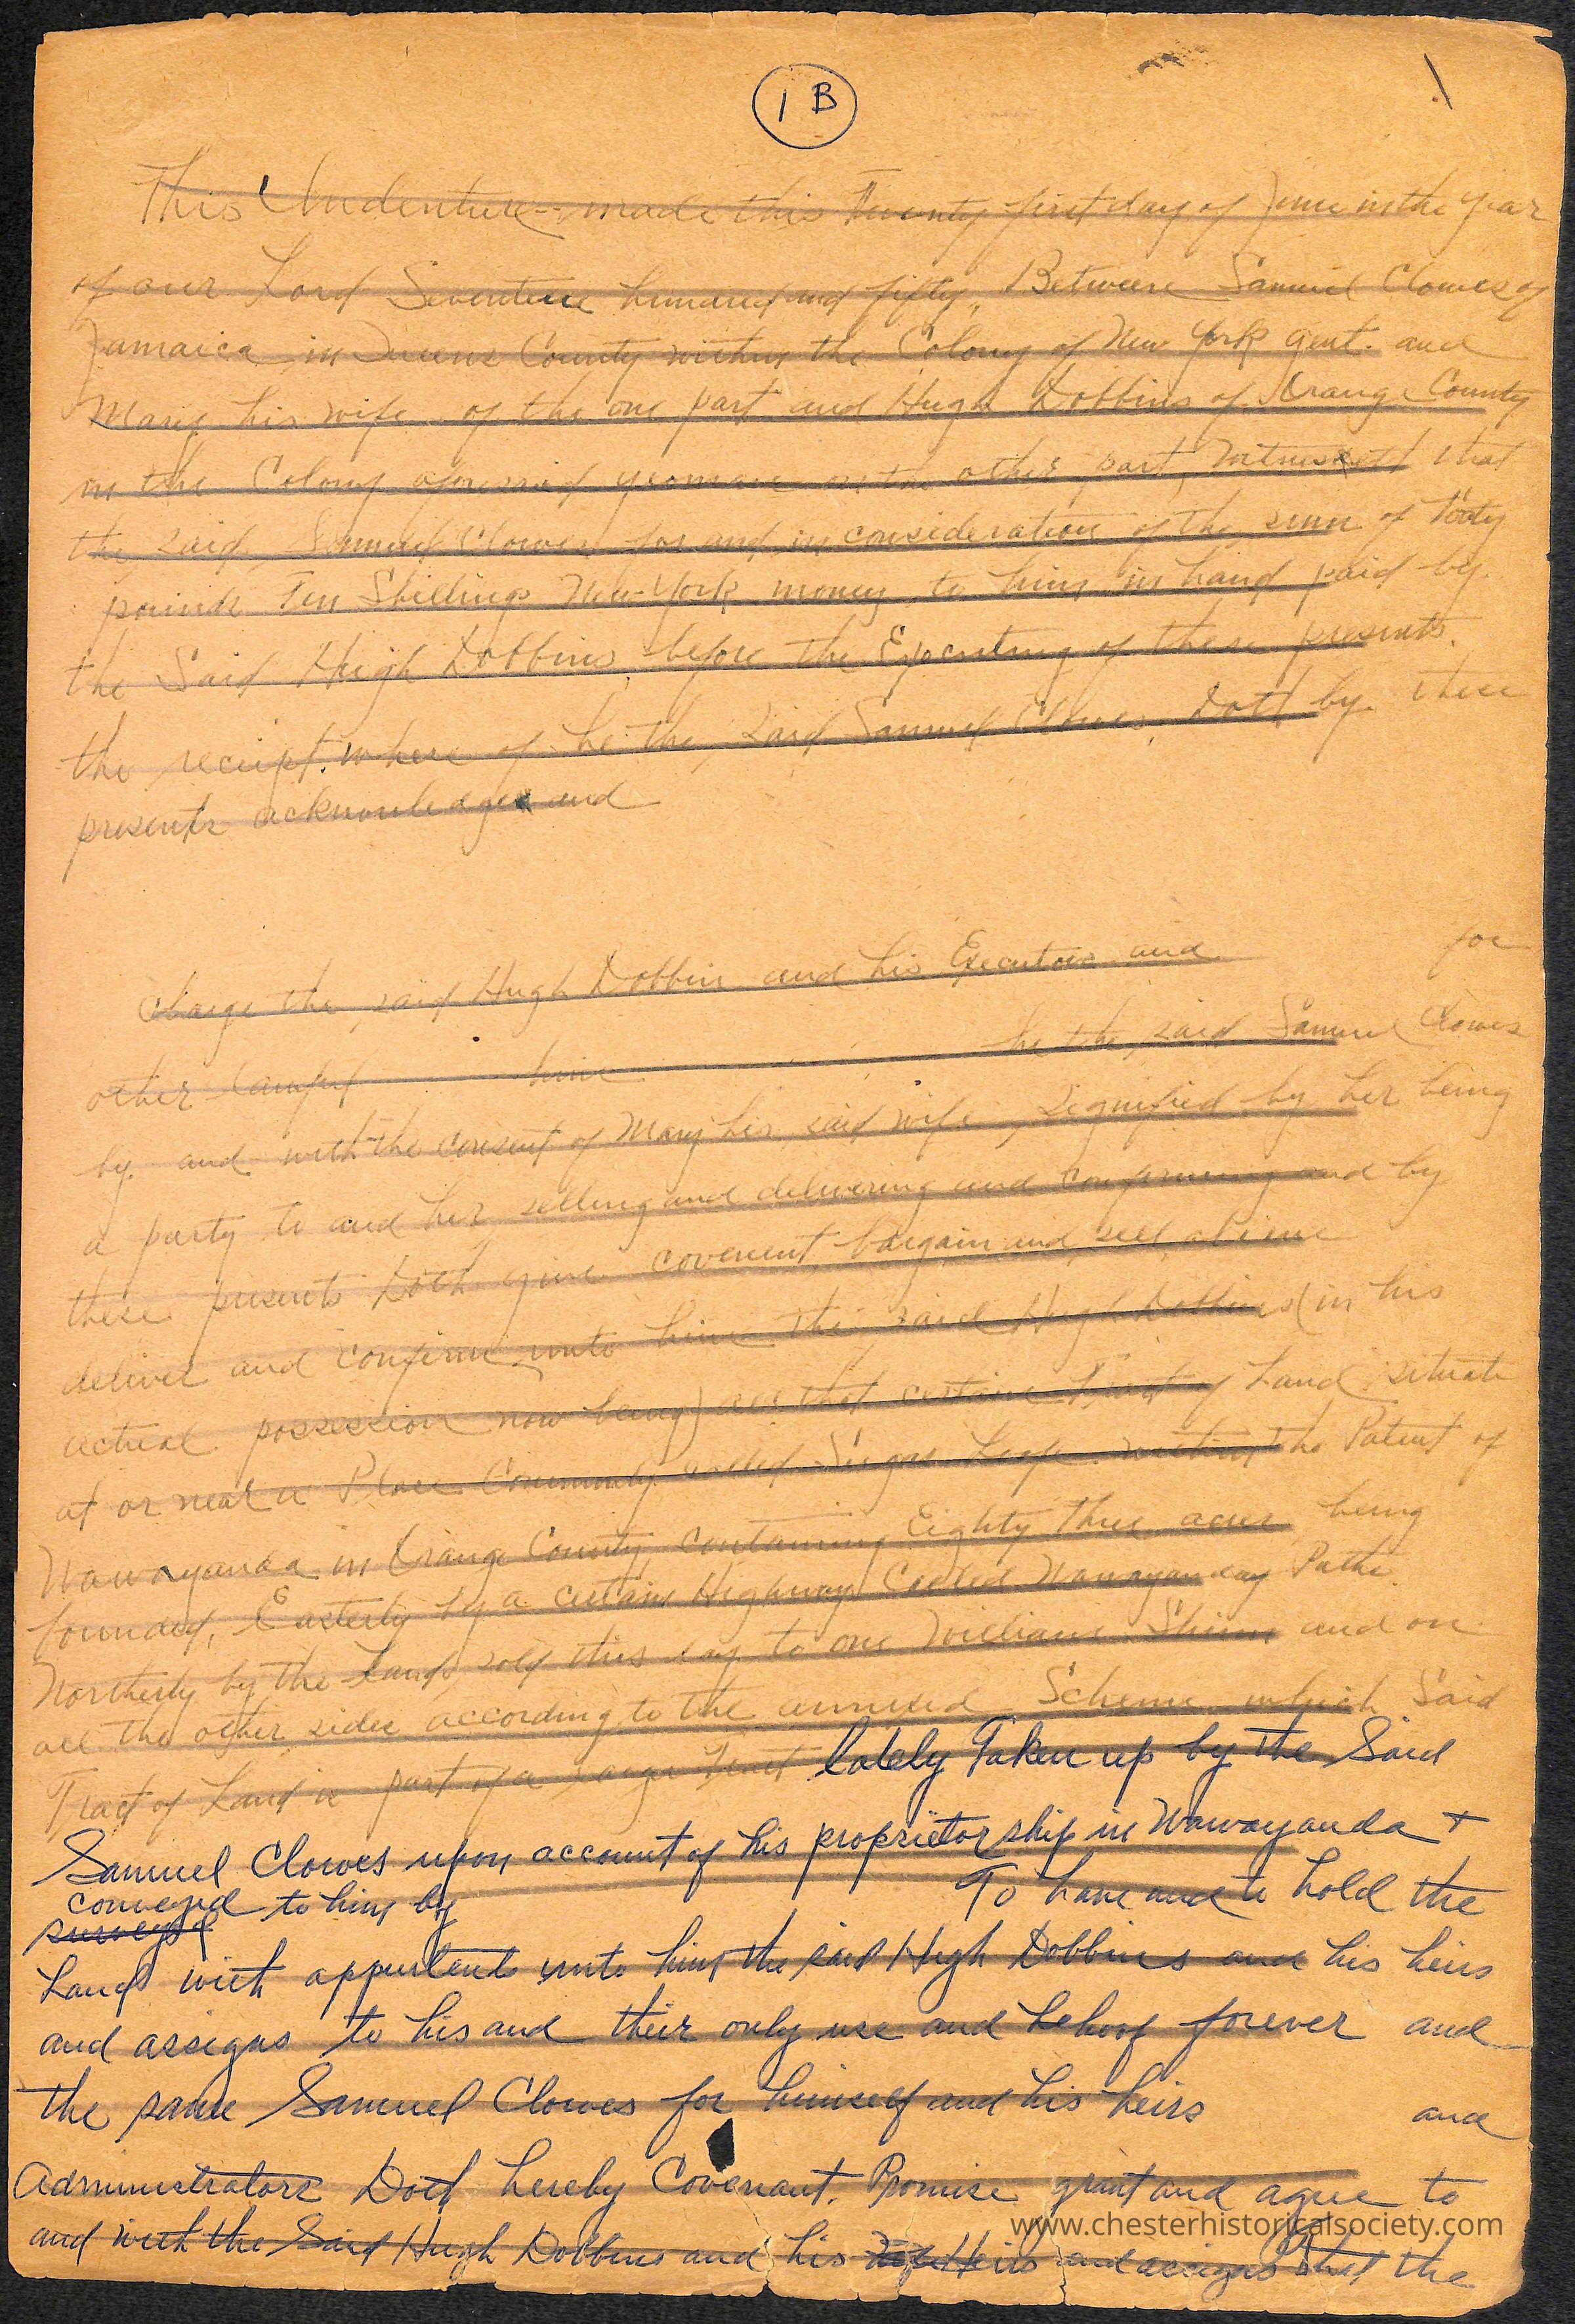 1 B
This Indenture -- made this Twenty first day of June in the year
of our Lord Seventeen hundred and fifty, Between Samuel Clowes of
Jamaica in Queens County within the Colony of New York gent. and
Mary his wife of the one part and Hugh Dobbins of Orange County
in the Colony aforesaid yeoman on the other part, Witnesseth that
the said Samuel Clowes for and in consideration of the sum of
pounds Ten Shillings New York money to him in hand paid by
the Said Hugh Dobbins before the Executing of these presents.
the receipt where of he the said Samuel Clowes Doth by these
presents acknowledge and
Charge the said Hugh Dobbin and his Executors and for
other lawful have he the said Samuel Clowes
by and with the consent of Mary his said wife, signified by her being
a party to and her selling and delivering and confirming and by
these presents Doth give covenent, bargain and sell
deliver and confirm unto him the said Hugh Dobbins (in his
actual possession now being) all that certain Tract of Land situate
at or near a Place Commonly called Sugar Loaf within the Patent of
Wawayanda in Orange County containing Eighty three acres being
bounded, Easterly by a certain Highway Called Wawayanday Path
Northerly by the Land sold this day to one William and on
all the other sides according to the annexed Scheme which Said
Tract of Land is part of a large tract lately Taken up by the Said
Samuel Clowes upon account of his proprietorship in Wawayanda +
conveyed to him by To have and to hold the
surveyed
Land with appurtend unto him the said Hugh Dobbins and his heirs
and assigns to his and their only use and behoof forever and
the same Samuel Clowes for himself and his heirs and
Administrators Doth hereby Covenant, Promise grant and agree to
and with the Said Hugh Dobbins and his Heirs and assigns that the
www.chesterhistoricalsociety.com